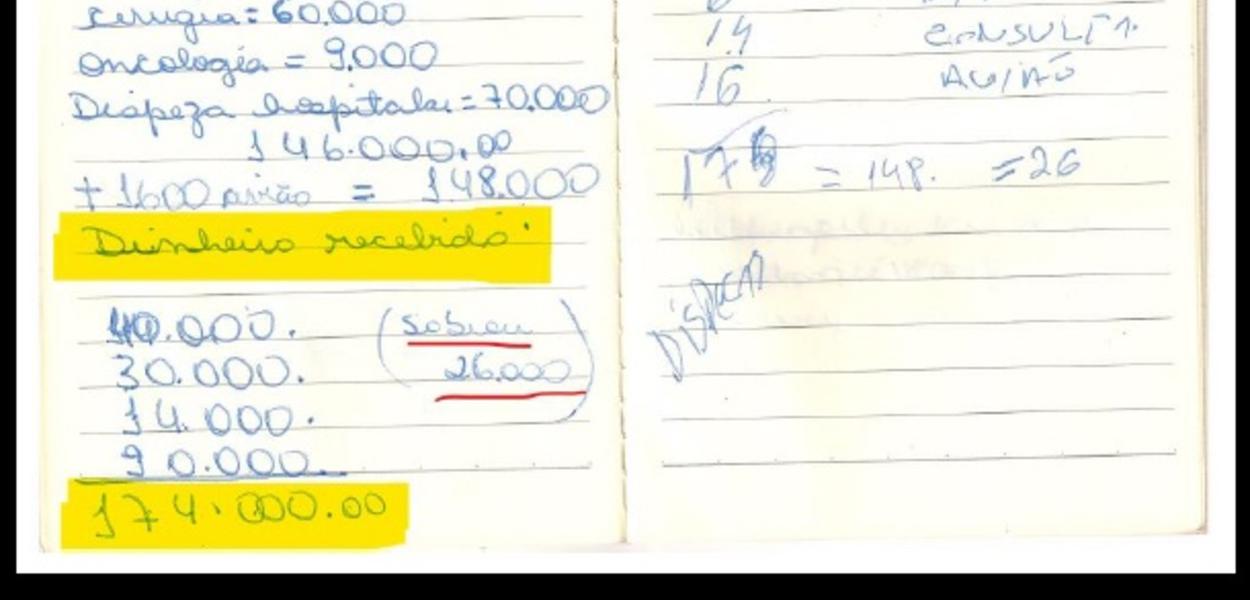 cirugia = 60.000
oncologia = 9.000
Dispeza hospitalar = 70.000
146.000.00
+ 1600 avião = 148.000
Dinheiro recebido
40.000.
30.000.
14.000.
90.000.
174.000.00
(Sobrou
26.000)
14 CONSULTA
16 AVIÃO
17 = 148. = 26